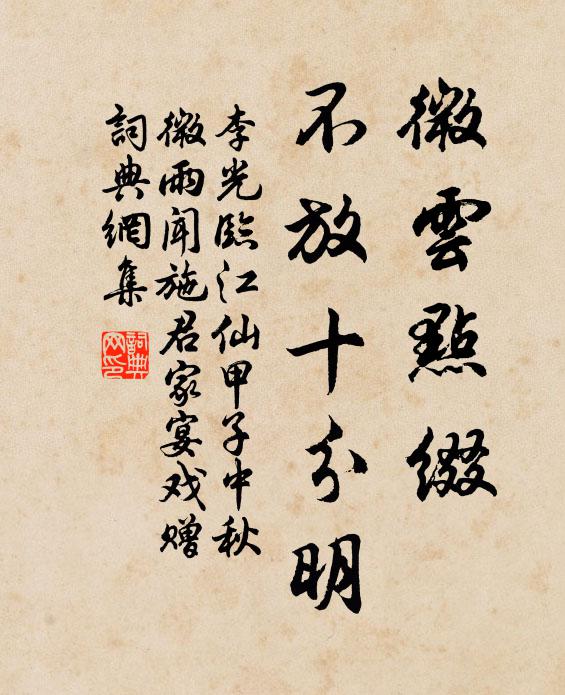 微雲點綴
不放十分明
李光臨江仙甲子中秋
微雨闻施君家宴戏赠
詞典網集
詞典网印